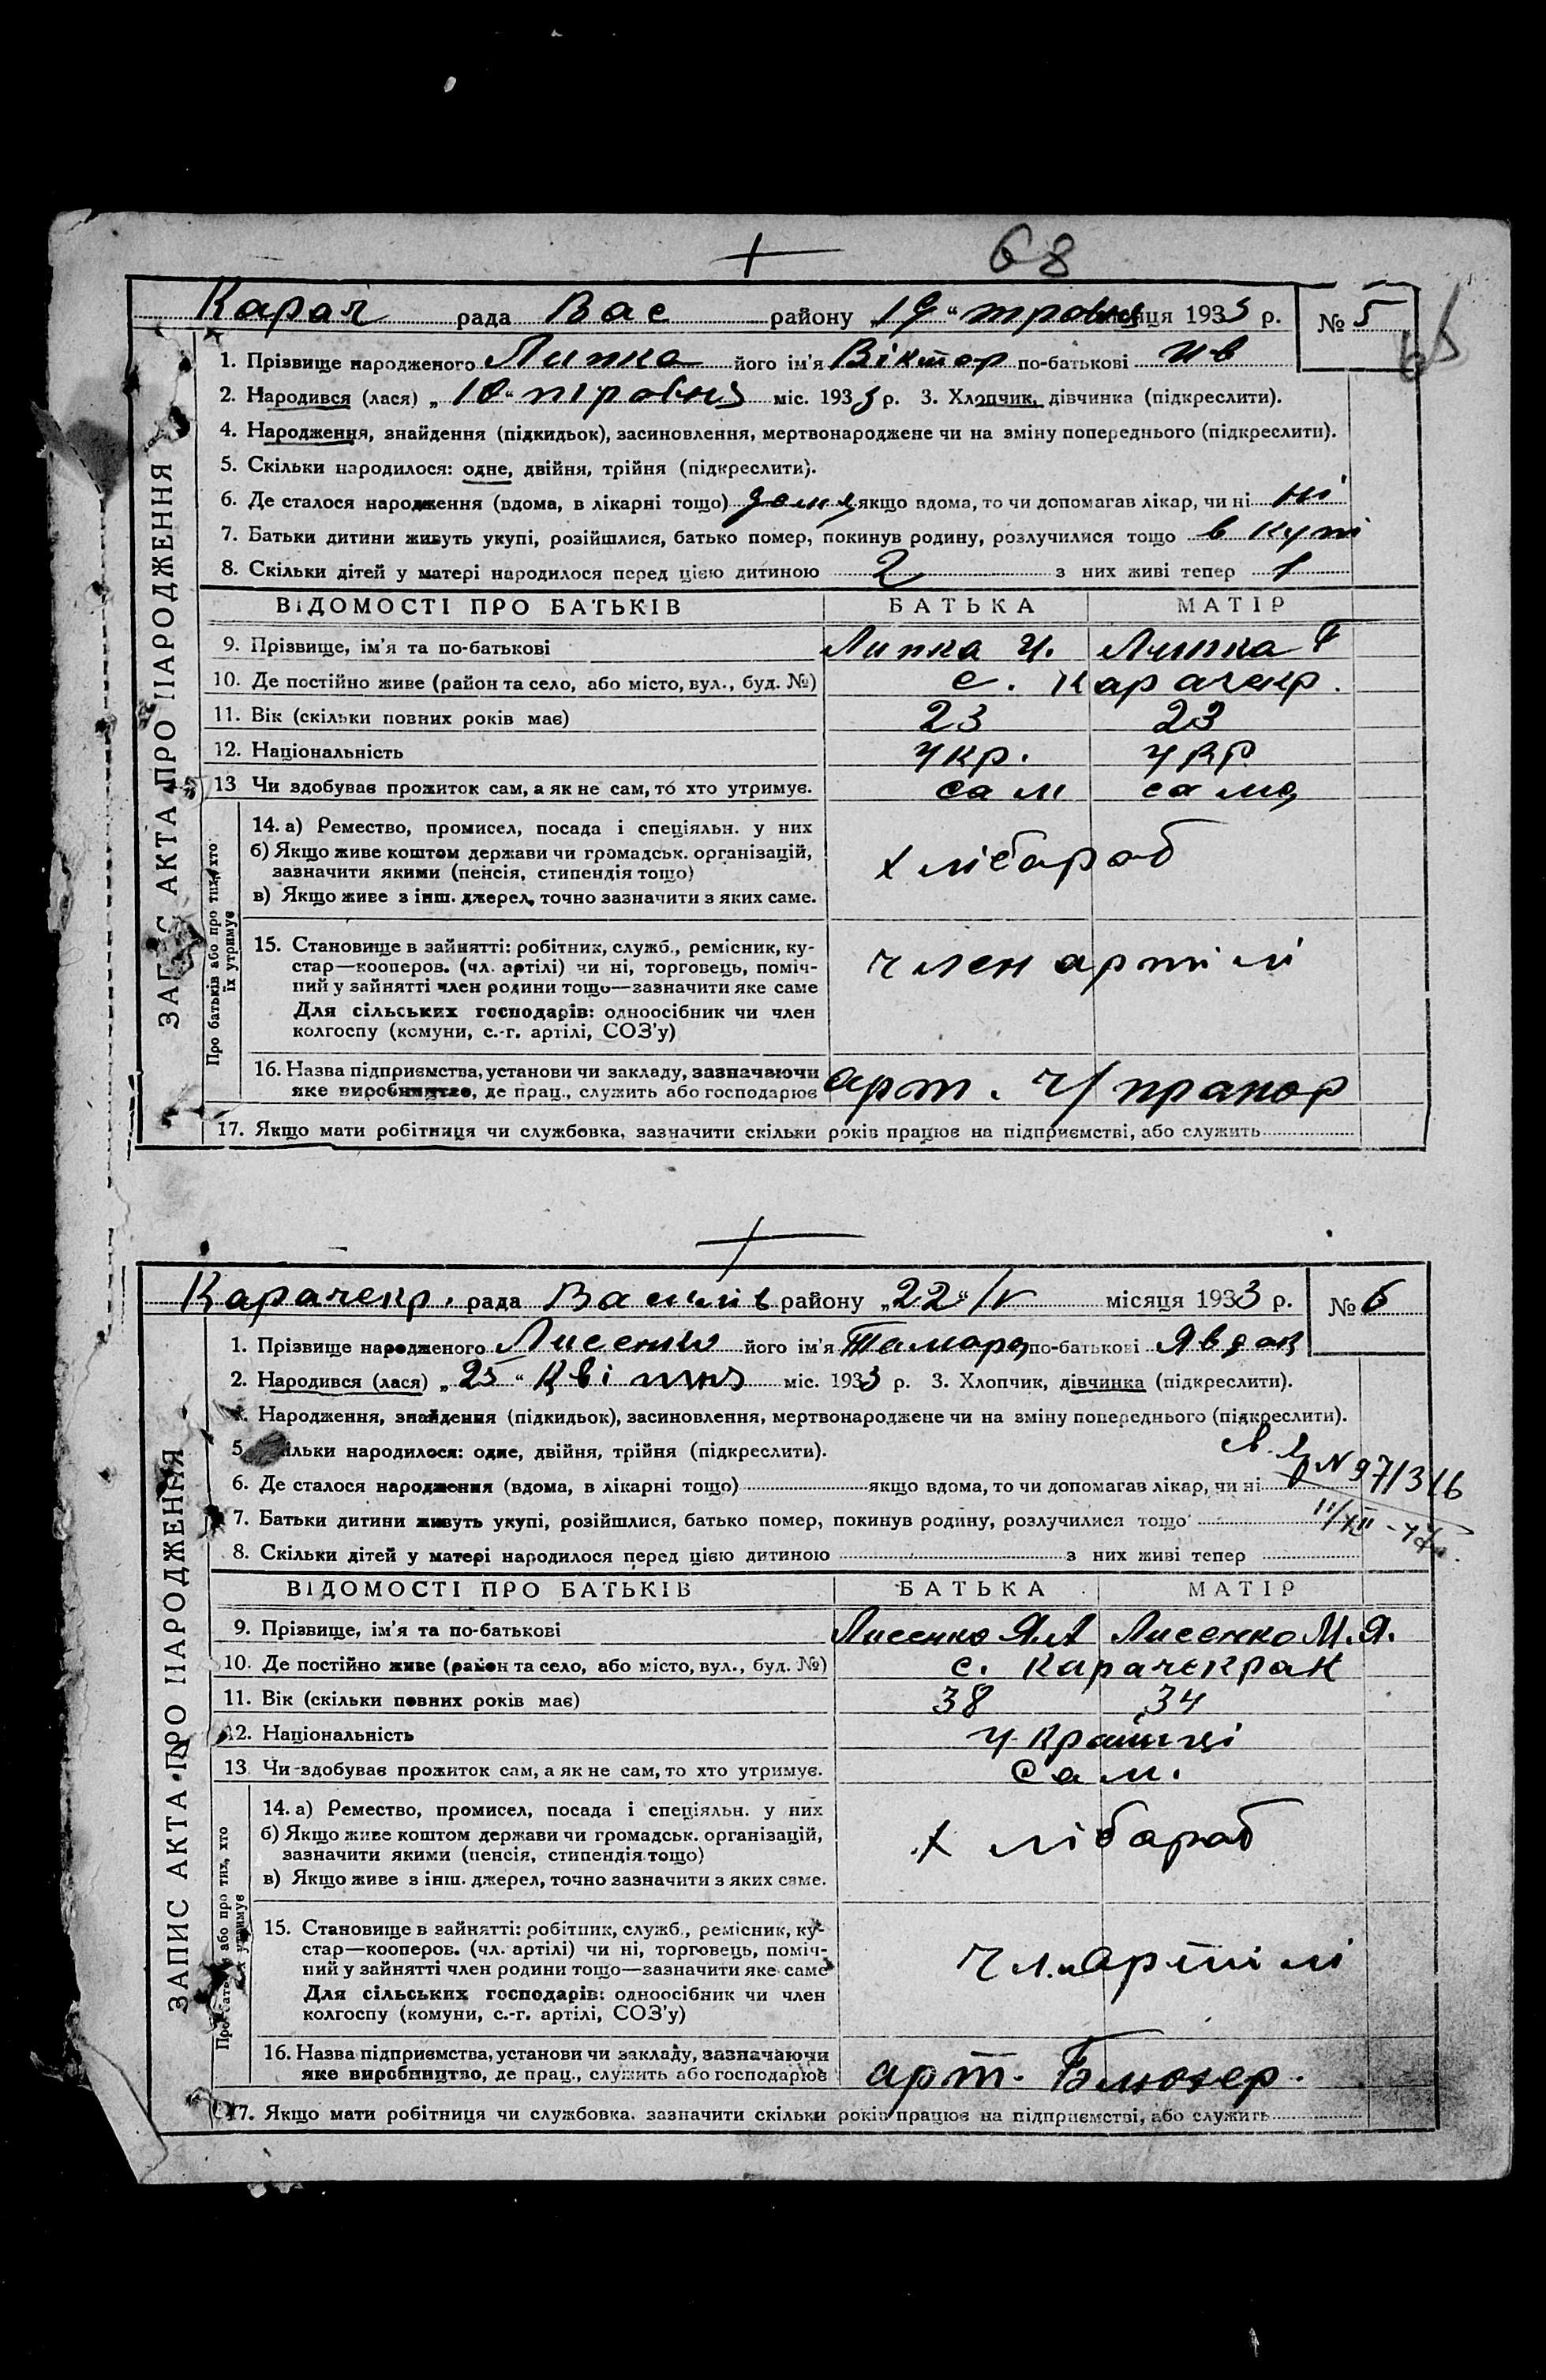 68
Карач рада Вас району „19“ травня місяця 1933 р. № 5
1. Прізвище народженого Липка його ім'я Віктор по-батькові Ив
2. Народився (лася) „10“ травня міс. 1933 р. 3. Хлопчик, дівчинка (підкреслити).
4. Народження, знайдення (підкидьок), засиновлення, мертвонароджене чи на зміну попереднього (підкреслити).
5. Скільки народилося: одне, двійня, трійня (підкреслити).
6. Де сталося народження (вдома, в лікарні тощо) дома якщо вдома, то чи допомагав лікар, чи ні ні
7. Батьки дитини живуть укупі, розійшлися, батько помер, покинув родину, розлучилися тощо в купі
8. Скільки дітей у матері народилося перед цією дитиною 2 з них живі тепер 1
ВІДОМОСТІ ПРО БАТЬКІВ БАТЬКА МАТІР
9. Прізвище, ім'я та по-батькові Липка И. Липка
10. Де постійно живе (район та село, або місто, вул., буд. №) с. Карачекр.
11. Вік (скільки повних років має) 23 23
12. Національність укр. укр
13 Чи здобуває прожиток сам, а як не сам, то хто утримує. сам сама
14. а) Ремество, промисел, посада і спеціяльн. у них
б) Якщо живе коштом держави чи громадськ. організацій,
зазначити якими (пенсія, стипендія тощо)
хлібароб
в) Якщо живе з інш. джерел, точно зазначити з яких саме.
15. Становище в зайнятті: робітник, служб., ремісник, ку-
стар—кооперов. (чл. артілі) чи ні, торговець, поміч-
ний у зайнятті член родини тощо—зазначити яке саме
член артілі
Для сільських господарів: одноосібник чи член
колгоспу (комуни, с.-г. артілі, СОЗ'у)
16. Назва підприємства, установи чи закладу, зазначаючи
яке виробництво, де прац., служить або господарює
арт. Ч/прапор
17. Якщо мати робітниця чи службовка, зазначити скільки років працює на підприємстві, або служить
ЗАПИС АКТА ПРО НАРОДЖЕННЯ
Про батьків або про тих, хто
їх утримує
Карачекр. рада Василів району „22“/IV місяця 1933 р. № 6
1. Прізвище народженого Лисенко його ім'я Тамара по-батькові
2. Народився (лася) „25“ Квітня міс. 1933 р. 3. Хлопчик, дівчинка (підкреслити).
4. Народження, знайдення (підкидьок), засиновлення, мертвонароджене чи на зміну попереднього (підкреслити).
5. Скільки народилося: одне, двійня, трійня (підкреслити).
6. Де сталося народження (вдома, в лікарні тощо) якщо вдома, то чи допомагав лікар, чи ні
N 971316
7. Батьки дитини живуть укупі, розійшлися, батько помер, покинув родину, розлучилися тощо
8. Скільки дітей у матері народилося перед цією дитиною з них живі тепер
ВІДОМОСТІ ПРО БАТЬКІВ БАТЬКА МАТІР
9. Прізвище, ім'я та по-батькові Лисенко Я.А Лисенко М.Я.
10. Де постійно живе (район та село, або місто, вул., буд. №) с. Карачекрак
11. Вік (скільки повних років має) 38 34
12. Національність українці
13 Чи здобуває прожиток сам, а як не сам, то хто утримує. сам.
14. а) Ремество, промисел, посада і спеціяльн. у них
б) Якщо живе коштом держави чи громадськ. організацій,
зазначити якими (пенсія, стипендія тощо)
хлібароб
в) Якщо живе з інш. джерел, точно зазначити з яких саме.
15. Становище в зайнятті: робітник, служб., ремісник, ку-
стар—кооперов. (чл. артілі) чи ні, торговець, поміч-
ний у зайнятті член родини тощо—зазначити яке саме
чл. артілі
Для сільських господарів: одноосібник чи член
колгоспу (комуни, с.-г. артілі, СОЗ'у)
16. Назва підприємства, установи чи закладу, зазначаючи
яке виробництво, де прац., служить або господарює
арт. Блюхер.
17. Якщо мати робітниця чи службовка. зазначити скільки років працює на підприємстві, або служить
ЗАПИС АКТА ПРО НАРОДЖЕННЯ
або про тих, хто
утримує